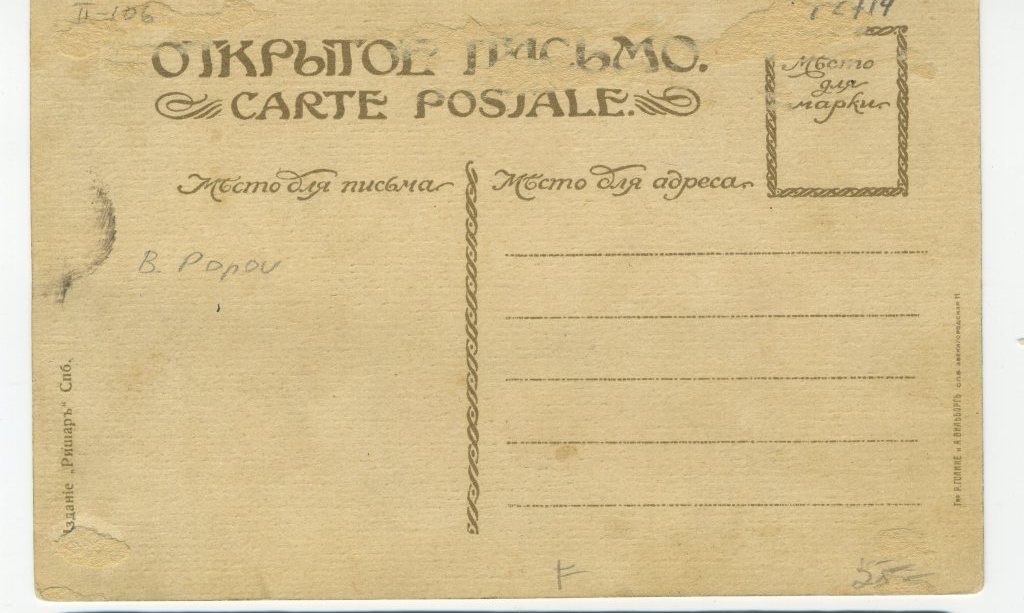 II-106
ОТКРЫТОЕ ПИСЬМО.
CARTE POSTALE.
Мѣсто
для
марки
Мѣсто для письма
Мѣсто для адреса
B. Popov
Изданіе „Ришаръ“ Спб.
Тип. Р. ГОЛИКЕ и А. ВИЛЬБОРГЪ СПБ. ЗВЕНИГОРОДСКАЯ 11
F
25-